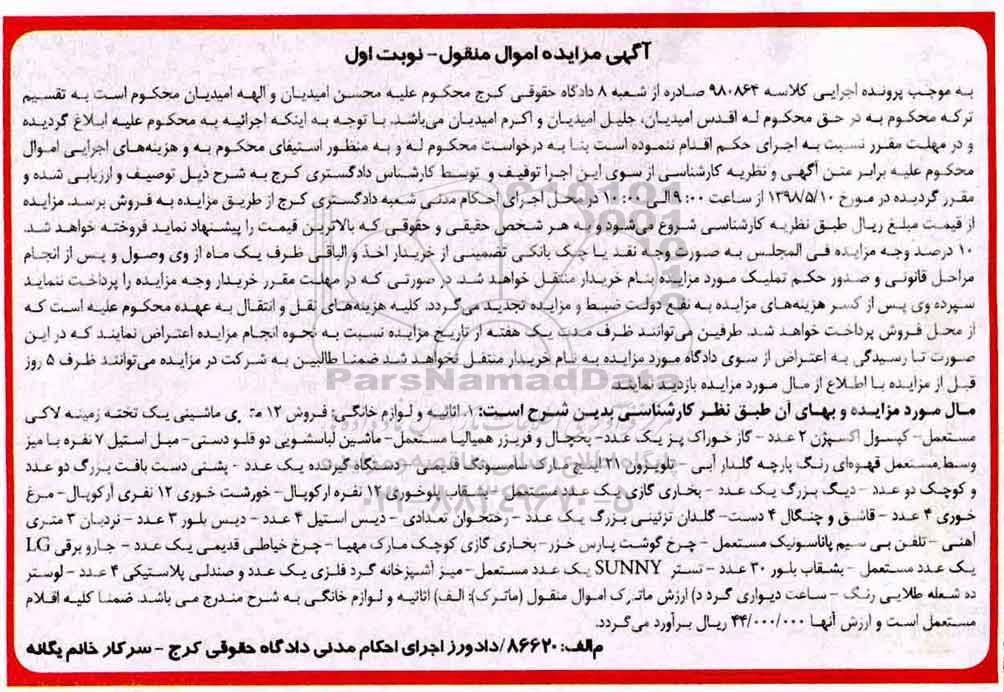 آگهی مزایده اموال منقول - نوبت اول
به موجب پرونده اجرایی کلاسه ۹۸۰۸۶۴ صادره از شعبه ۸ دادگاه حقوقی کرج محکوم علیه محسن امیدیان و الهه امیدیان محکوم است به تقسیم
ترکه محکوم به در حق محکوم له اقدس امیدیان، جلیل امیدیان و اکرم امیدیان می‌باشد. با توجه به اینکه اجرائیه به محکوم علیه ابلاغ گردیده
و در مهلت مقرر نسبت به اجرای حکم اقدام ننموده است بنا به درخواست محکوم له و به منظور استیفای محکوم به و هزینه‌های اجرایی اموال
محکوم علیه برابر متن آگهی و نظریه کارشناسی از سوی این اجرا توقیف و توسط کارشناس دادگستری کرج به شرح ذیل توصیف و ارزیابی شده و
مقرر گردیده در مورخ ۱۳۹۸/۵/۱۰ از ساعت ۹:۰۰ الی ۱۰:۰۰ در محل اجرای احکام مدنی شعبه دادگستری کرج از طریق مزایده به فروش برسد. مزایده
از قیمت مبلغ ریال طبق نظریه کارشناسی شروع می‌شود و به هر شخص حقیقی و حقوقی که بالاترین قیمت را پیشنهاد نماید فروخته خواهد شد.
۱۰ درصد وجه مزایده فی المجلس به صورت وجه نقد یا چک بانکی تضمینی از خریدار اخذ و الباقی ظرف یک ماه از وی وصول و پس از انجام
مراحل قانونی و صدور حکم تملیک مورد مزایده بنام خریدار منتقل خواهد شد. در صورتی که در مهلت مقرر خریدار وجه مزایده را پرداخت ننماید
سپرده وی پس از کسر هزینه‌های مزایده به نفع دولت ضبط و مزایده تجدید می‌گردد. کلیه هزینه‌های نقل و انتقال به عهده محکوم علیه است که
از محل فروش پرداخت خواهد شد. طرفین می‌توانند ظرف مدت یک هفته از تاریخ مزایده نسبت به نحوه انجام مزایده اعتراض نمایند که در این
صورت تا رسیدگی به اعتراض از سوی دادگاه مورد مزایده به نام خریدار منتقل نخواهد شد ضمنا طالبین به شرکت در مزایده می‌توانند ظرف ۵ روز
قبل از مزایده با اطلاع از مال مورد مزایده بازدید نمایند.
مال مورد مزایده و بهای آن طبق نظر کارشناسی بدین شرح است: ۱. اثاثیه و لوازم خانگی: فروش ۱۲ متری ماشینی یک تخته زمینه لاکی
مستعمل- کپسول اکسیژن ۲ عدد - گاز خوراک پز یک عدد- یخچال و فریزر همیالیا مستعمل- ماشین لباسشویی دو قلو دستی- مبل استیل ۷ نفره با میز
وسط مستعمل قهوه‌ای رنگ پارچه گلدار آبی - تلویزون ۲۱ اینچ مارک سامسونگ قدیمی - دستگاه گیرنده یک عدد - پشتی دست بافت بزرگ دو عدد
و کوچک دو عدد - دیگ بزرگ یک عدد - بخاری گازی یک عدد مستعمل - بشقاب پلوخوری ۱۲ نفره ارکوپال- خورشت خوری ۱۲ نفری آرکوپال- مرغ
خوری ۴ عدد - قاشق و چنگال ۴ دست- گلدان تزئینی بزرگ یک عدد - رختخوان تعدادی - دیس استیل ۴ عدد - دیس بلور ۳ عدد - نردبان ۳ متری
آهنی - تلفن بی سیم پاناسونیک مستعمل - چرخ گوشت پارس خزر- بخاری گازی کوچک مارک مهیا - چرخ خیاطی قدیمی یک عدد - جارو برقی LG
یک عدد مستعمل - بشقاب بلور ۳۰ عدد - تستر SUNNY یک عدد مستعمل- میز آشپزخانه گرد فلزی یک عدد و صندلی پلاستیکی ۴ عدد - لوستر
ده شعله طلایی رنگ - ساعت دیواری گرد د) ارزش ماترک اموال منقول (ماترک): الف) اثاثیه و لوازم خانگی به شرح مندرج می باشد. ضمنا کلیه اقلام
مستعمل است و ارزش آنها ۴۴/۰۰۰/۰۰۰ ریال برآورد می‌گردد.
م الف: ۸۶۶۲۰/دادورز اجرای احکام مدنی دادگاه حقوقی کرج - سرکار خانم یگانه
ParsNamadData
۰۲۱-۸۸۳۴۹۶۷۰-۵